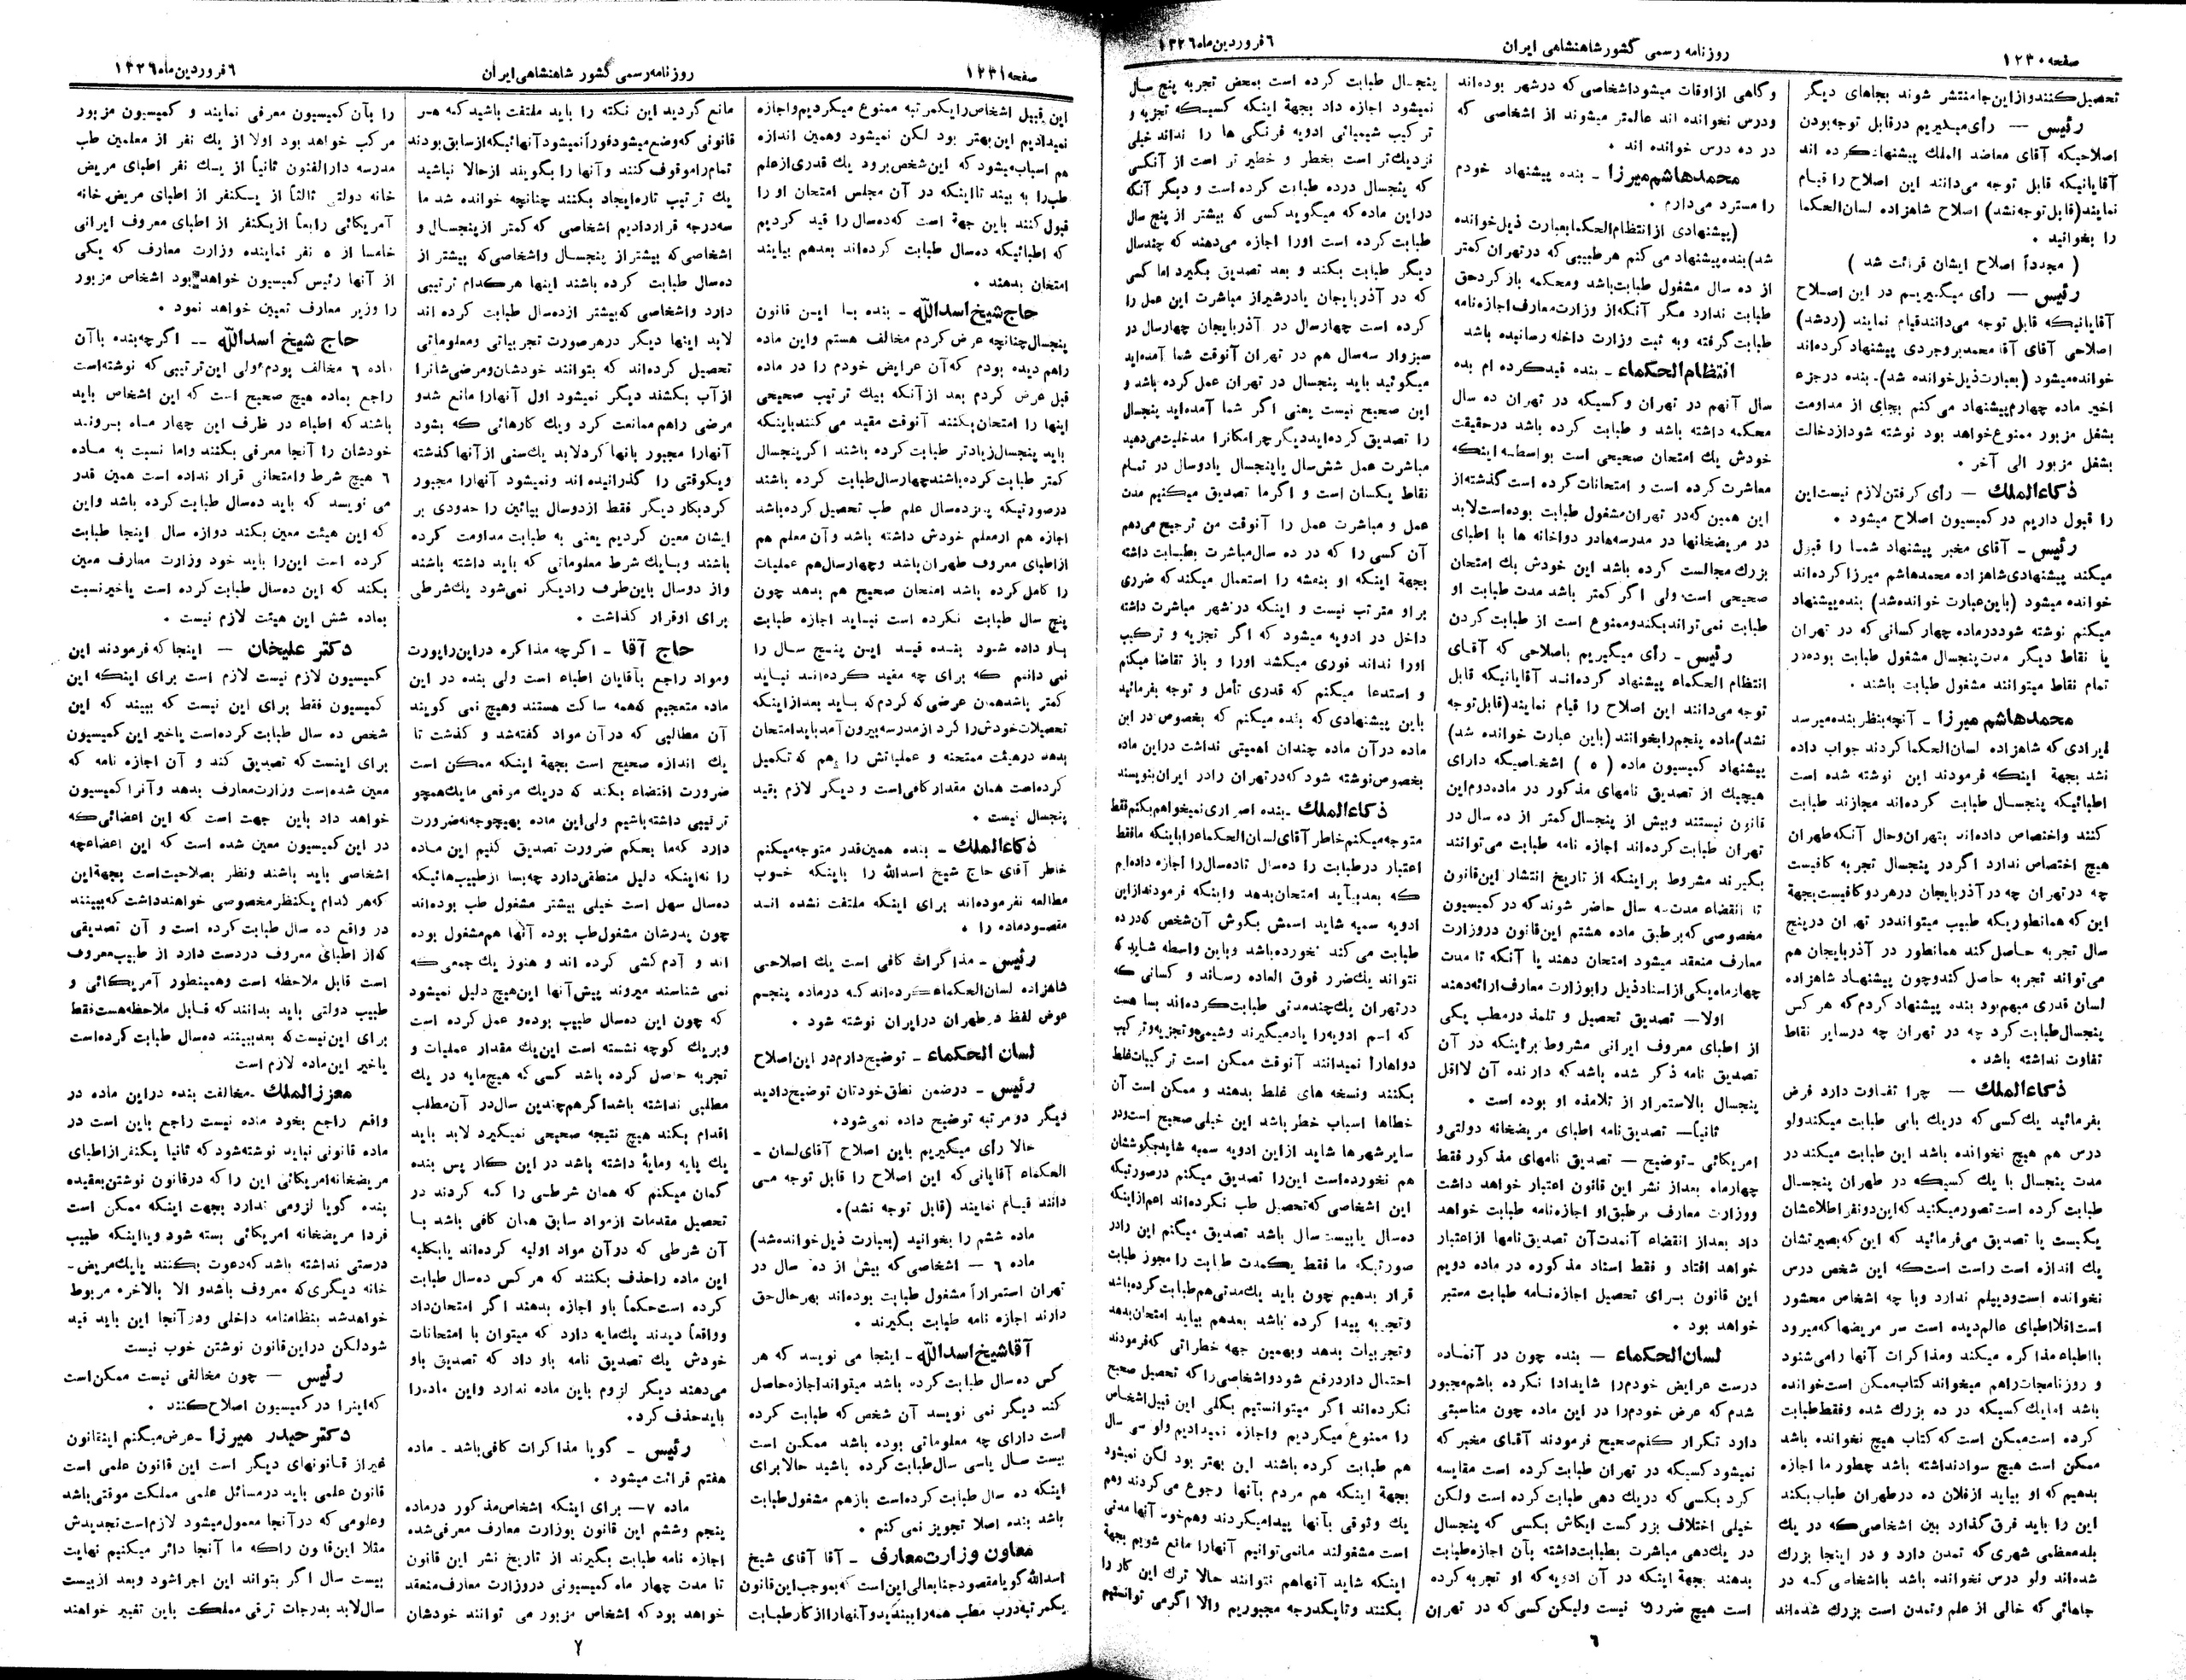 صفحه ۱۲۳۰
روزنامه رسمی کشور شاهنشاهی ایران
۶ فروردین ماه ۱۳۲۶
تحصیل کنند و از این جا منتشر شوند بجاهای دیگر
رئیس — رأی میگیریم در قابل توجه بودن
اصلاحیکه آقای معاضد الملک پیشنهاد کرده اند
آقایانیکه قابل توجه می‌دانند این اصلاح را قیام
نمایند (قابل توجه نشد) اصلاح شاهزاده لسان الحکما
را بخوانید .
( مجدداً اصلاح ایشان قرائت شد )
رئیس — رأی میگیریم در این اصلاح
آقایانیکه قابل توجه می‌دانند قیام نمایند (رد شد)
اصلاحی آقای آقا محمد بروجردی پیشنهاد کرده‌اند
خوانده میشود (بعبارت ذیل خوانده شد) . بنده در جزء
اخیر ماده چهارم پیشنهاد می کنم بجای از مداومت
بشغل مزبور ممنوع خواهد بود نوشته شود از دخالت
بشغل مزبور الی آخر .
ذکاء الملک — رأی گرفتن لازم نیست این
را قبول داریم در کمیسیون اصلاح میشود .
رئیس - آقای مخبر پیشنهاد شما را قبول
میکند پیشنهادی شاهزاده محمد هاشم میرزا کرده‌اند
خوانده میشود (باین عبارت خوانده شد) بنده پیشنهاد
میکنم نوشته شود در ماده چهار کسانی که در تهران
یا نقاط دیگر مدت پنجسال مشغول طبابت بوده در
تمام نقاط میتوانند مشغول طبابت باشند .
محمد هاشم میرزا - آنچه بنظر بنده میرسد
ایرادی که شاهزاده لسان الحکما کردند جواب داده
نشد بجهة اینکه فرمودند این نوشته شده است
اطبائیکه پنجسال طبابت کرده‌اند مجازند طبابت
کنند و اختصاص داده‌اند بتهران و حال آنکه طهران
هیچ اختصاص ندارد اگر در پنجسال تجربه کافیست
چه در تهران چه در آذربایجان در هر دو کافیست بجهة
این که همانطوریکه طبیب میتواند در تهران در پنج
سال تجربه حاصل کند همانطور در آذربایجان هم
می‌تواند تجربه حاصل کند و چون پیشنهاد شاهزاده
لسان قدری مبهم بود بنده پیشنهاد کردم که هر کس
پنجسال طبابت کرد چه در تهران چه در سایر نقاط
تفاوت نداشته باشد .
ذکاء الملک — چرا تفاوت دارد فرض
بفرمائید یک کسی که در یک بابی طبابت میکند ولو
درس هم هیچ نخوانده باشد این طبابت میکند در
مدت پنجسال با یک کسیکه در طهران پنجسال
طبابت کرده است تصور میکنید که این دو نفر اطلاعشان
یکیست یا تصدیق می‌فرمائید که این که بصیرتشان
یک اندازه است راست است که این شخص درس
نخوانده است و دیپلم ندارد و با چه اشخاص محشور
است اقلا اطبای عالم دیده است سر مریضها که میرود
با اطباء مذاکره میکند و مذاکرات آنها را می شنود
و روزنامجات راهم میخواند کتاب ممکن است خوانده
باشد اما یک کسیکه در ده بزرگ شده و فقط طبابت
کرده است ممکن است که کتاب هیچ نخوانده باشد
ممکن است هیچ سواد نداشته باشد چطور ما اجازه
بدهیم که او بیاید از فلان ده در طهران طباب بکند
این را باید فرق گذارد بین اشخاصی که در یک
بلد معظمی شهری که تمدن دارد و در اینجا بزرگ
شده‌اند ولو درس نخوانده باشد با اشخاصی که در
جاهائی که خالی از علم و تمدن است بزرگ شده‌اند
و گاهی از اوقات میشود اشخاصی که در شهر بوده‌اند
و درس نخوانده اند عالمتر میشوند از اشخاصی که
در ده درس خوانده اند .
محمد هاشم میرزا - بنده پیشنهاد خودم
را مسترد می‌دارم .
(پیشنهادی از انتظام الحکما بعبارت ذیل خوانده
شد) بنده پیشنهاد می کنم هر طبیبی که در تهران کمتر
از ده سال مشغول طبابت باشد و محکمه باز کرد حق
طبابت ندارد مگر آنکه از وزارت معارف اجازه نامه
طبابت گرفته و به ثبت وزارت داخله رسانیده باشد
انتظام الحکماء - بنده قید کرده ام بده
سال آنهم در تهران و کسیکه در تهران ده سال
محکمه داشته باشد و طبابت کرده باشد در حقیقت
خودش یک امتحان صحیحی است بواسطه اینکه
معاشرت کرده است و امتحانات کرده است گذشته از
این همین که در تهران مشغول طبابت بوده است لابد
در مریضخانها در مدرسه‌ها در دواخانه ها با اطبای
بزرگ مجالست کرده باشد این خودش یک امتحان
صحیحی است ولی اگر کمتر باشد مدت طبابت او
طبابت نمی تواند بکند و ممنوع است از طبابت کردن
رئیس - رأی میگیریم باصلاحی که آقای
انتظام الحکماء پیشنهاد کرده‌اند آقایانیکه قابل
توجه می‌دانند این اصلاح را قیام نمایند (قابل توجه
نشد) ماده پنجم را بخوانند (باین عبارت خوانده شد)
پیشنهاد کمیسیون ماده ( ۵ ) اشخاصیکه دارای
هیچیک از تصدیق نامهای مذکور در ماده دوم این
قانون نیستند و بیش از پنجسال کمتر از ده سال در
تهران طبابت کرده‌اند اجازه نامه طبابت می‌توانند
بگیرند مشروط بر اینکه از تاریخ انتشار این قانون
تا انقضاء مدت سه سال حاضر شوند که در کمیسیون
مخصوصی که بر طبق ماده هشتم این قانون در وزارت
معارف منعقد میشود امتحان دهند یا آنکه تا مدت
چهار ماه یکی از اسناد ذیل را بوزارت معارف ارائه دهند
اولا — تصدیق تحصیل و تلمذ در مطب یکی
از اطبای معروف ایرانی مشروط بر اینکه در آن
تصدیق نامه ذکر شده باشد که دارنده آن لااقل
پنجسال بالاستمرار از تلامذه او بوده است .
ثانیاً — تصدیق نامه اطبای مریضخانه دولتی و
امریکائی - توضیح — تصدیق نامهای مذکور فقط
چهار ماه بعد از نشر این قانون اعتبار خواهد داشت
و وزارت معارف بر طبق او اجازه نامه طبابت خواهد
داد بعد از انقضاء آنمدت آن تصدیق نامها از اعتبار
خواهد افتاد و فقط اسناد مذکوره در ماده دویم
این قانون برای تحصیل اجازه نامه طبابت معتبر
خواهد بود .
لسان الحکماء — بنده چون در آنماده
درست عرایض خودم را شاید ادا نکرده باشم مجبور
شدم که عرض خودم را در این ماده چون مناسبتی
دارد تکرار کنم صحیح فرمودند آقای مخبر که
نمیشود کسیکه در تهران طبابت کرده است مقایسه
کرد بکسی که در یک دهی طبابت کرده است ولکن
خیلی اختلاف بزرگست ایکاش بکسی که پنجسال
در یک دهی مباشرت بطبابت داشته بآن اجازه طبابت
بدهند بجهة اینکه در آن ادویه که او تجربه کرده
است هیچ ضرری نیست ولیکن کسی که در تهران
پنجسال طبابت کرده است بمحض تجربه پنج سال
نمیشود اجازه داد بجهة اینکه کسیکه تجزیه و
ترکیب شیمیائی ادویه فرنگی ها را نداند خیلی
نزدیک تر است بخطر و خطیر تر است از آنکسی
که پنجسال در ده طبابت کرده است و دیگر آنکه
در این ماده که میگوید کسی که بیشتر از پنج سال
طبابت کرده است اورا اجازه می‌دهند که چند سال
دیگر طبابت بکند و بعد تصدیق بگیرد اما کمی
که در آذربایجان یا در شیراز مباشرت این عمل را
کرده است چهار سال در آذربایجان چهار سال در
سبزوار سه سال هم در تهران آنوقت شما آمده‌اید
میگوئید باید پنجسال در تهران عمل کرده باشد و
این صحیح نیست یعنی اگر شما آمده‌اید پنجسال
را تصدیق کرده‌اید دیگر چرا مکانرا مدخلیت می‌دهید
مباشرت عمل شش سال یا پنجسال یا دو سال در تمام
نقاط یکسان است و اگر ما تصدیق میکنیم مدت
عمل و مباشرت عمل را آنوقت من ترجیح می‌دهم
آن کسی را که در ده سال مباشرت بطبابت داشته
بجهة اینکه او بنفشه را استعمال میکند که ضرری
بر او مترتب نیست و اینکه در شهر مباشرت داشته
داخل در ادویه میشود که اگر تجزیه و ترکیب
اورا نداند فوری میکشد اورا و باز تقاضا میکنم
و استدعا میکنم که قدری تأمل و توجه بفرمائید
باین پیشنهادی که بنده میکنم که بخصوص در این
ماده در آن ماده چندان اهمیتی نداشت در این ماده
بخصوص نوشته شود که در تهران را در ایران بنویسند
ذکاء الملک - بنده اصراری نمیخواهم بکنم فقط
متوجه میکنم خاطر آقای لسان الحکماء را باینکه ما فقط
اعتبار در طبابت را ده سال تا ده سال را اجازه داده‌ایم
که بعد بیاید امتحان بدهد و اینکه فرمودند از این
ادویه سمیه شاید اسمش بگوش آن شخص که در ده
طبابت می کند نخورده باشد و باین واسطه شاید که
نتواند یک ضرر فوق العاده رساند و کسانی که
در تهران یک چند مدتی طبابت کرده‌اند بسا هست
که اسم ادویه را یاد میگیرند و شیمی و تجزیه و ترکیب
دواهارا نمیدانند آنوقت ممکن است ترکیبات غلط
بکنند و نسخه های غلط بدهند و ممکن است آن
خطاها اسباب خطر باشد این خیلی صحیح است و در
سایر شهرها شاید از این ادویه سمیه شاید بگوششان
هم نخورده است این را تصدیق میکنم در صورتیکه
این اشخاصی که تحصیل طب نکرده‌اند اعم از اینکه
ده سال یا بیست سال باشد تصدیق میکنم این را در
صورتیکه ما فقط یکمدت طبابت را مجوز طبابت
قرار بدهیم چون باید یک مدتی هم طبابت کرده باشد
و تجربه پیدا کرده باشد بعد هم بیاید امتحان بدهد
و تجربیات بدهد و بهمین جهه خطراتی که فرمودند
احتمال دارد رفع شود و اشخاصی را که تحصیل صحیح
نکرده‌اند اگر میتوانستیم بکلی این قبیل اشخاص
را ممنوع میکردیم و اجازه نمیدادیم ولو سی سال
هم طبابت کرده باشند این بهتر بود لکن نمیشود
بجهة اینکه هم مردم بآنها رجوع می کردند وهم
یک وثوقی بآنها پیدا میکردند وهم خود آنها مدتی
است مشغولند ما نمی توانیم آنهارا مانع شویم بجهة
اینکه شاید آنهاهم نتوانند حالا ترک این کار را
بکنند و تا یکدرجه مجبوریم والا اگر می توانستیم
۶
صفحه ۱۲۳۱
روزنامه رسمی کشور شاهنشاهی ایران
۶ فروردین ماه ۱۳۲۶
این قبیل اشخاص را یکمرتبه ممنوع میکردیم و اجازه
نمیدادیم این بهتر بود لکن نمیشود وهمین اندازه
هم اسباب میشود که این شخص برود یک قدری از علم
طب را به بیند تا اینکه در آن مجلس امتحان او را
قبول کنند باین جهة است که ده سال را قید کردیم
که اطبائیکه ده سال طبابت کرده‌اند بعد هم بیایند
امتحان بدهند .
حاج شیخ اسدالله - بنده با این قانون
پنجسال چنانچه عرض کردم مخالف هستم واین ماده
راهم دیده بودم که آن عرایض خودم را در ماده
قبل عرض کردم بعد از آنکه بیک ترتیب صحیحی
اینها را امتحان بکنند آنوقت مقید می کنند باینکه
باید پنجسال زیادتر طبابت کرده باشند اگر پنجسال
کمتر طبابت کرده باشند چهار سال طبابت کرده باشند
در صورتیکه پانزده سال علم طب تحصیل کرده باشد
اجازه هم از معلم خودش داشته باشد و آن معلم هم
از اطبای معروف طهران باشد و چهار سال هم عملیات
را کامل کرده باشد امتحان صحیح هم بدهد چون
پنج سال طبابت نکرده است نباید اجازه طبابت
باو داده شود بنده قید این پنج سال را
نمی دانم که برای چه مقید کرده‌اند نباید
کمتر باشد همان عرضی که کردم که باید بعد از اینکه
تحصیلات خودش را کرد از مدرسه بیرون آمد باید امتحان
بدهد در هیئت ممتحنه و عملیاتش را هم که تکمیل
کرده است همان مقدار کافی است و دیگر لازم بقید
پنجسال نیست .
ذکاء الملک - بنده همین قدر متوجه میکنم
خاطر آقای حاج شیخ اسدالله را باینکه خوب
مطالعه نفرموده‌اند برای اینکه ملتفت نشده اند
مقصود ماده را .
رئیس - مذاکرات کافی است یک اصلاحی
شاهزاده لسان الحکماء کرده‌اند که در ماده پنجم
عوض لفظ در طهران در ایران نوشته شود .
لسان الحکماء - توضیح دارم در این اصلاح
رئیس - در ضمن نطق خودتان توضیح دادید
دیگر دو مرتبه توضیح داده نمی شود .
حالا رأی میگیریم باین اصلاح آقای لسان -
الحکماء آقایانی که این اصلاح را قابل توجه می
دانند قیام نمایند (قابل توجه نشد) .
ماده ششم را بخوانید (بعبارت ذیل خوانده شد)
ماده ۶ — اشخاصی که بیش از ده سال در
تهران استمراراً مشغول طبابت بوده‌اند بهر حال حق
دارند اجازه نامه طبابت بگیرند .
آقا شیخ اسدالله - اینجا می نویسد که هر
کس ده سال طبابت کرده باشد میتواند اجازه حاصل
کند دیگر نمی نویسد آن شخص که طبابت کرده
است دارای چه معلوماتی بوده باشد ممکن است
بیست سال یاسی سال طبابت کرده باشید حالا برای
اینکه ده سال طبابت کرده است بازهم مشغول طبابت
باشد بنده اصلا تجویز نمی کنم .
معاون وزارت معارف - آقا آقای شیخ
اسدالله گویا مقصود جنابعالی این است که بموجب این قانون
یکمرتبه درب مطب همه را ببندید و آنهارا از کار طبابت
مانع گردید این نکته را باید ملتفت باشید که هر
قانونی که وضع میشود فوراً نمیشود آنهائیکه از سابق بودند
تمام را موقوف کنند و آنها را بگویند از حالا نباشید
یک ترتیب تازه ایجاد بکنند چنانچه خوانده شد ما
سه درجه قرار دادیم اشخاصی که کمتر از پنجسال و
اشخاصی که بیشتر از پنجسال و اشخاصی که بیشتر از
ده سال طبابت کرده باشند اینها هر کدام ترتیبی
دارد و اشخاصی که بیشتر از ده سال طبابت کرده اند
لابد اینها دیگر در هر صورت تجربیاتی و معلوماتی
تحصیل کرده‌اند که بتوانند خودشان و مرضی شانرا
از آب بکشند دیگر نمیشود اول آنهارا مانع شد و
مرضی راهم ممانعت کرد و یک کارهائی که بشود
آنهارا مجبور بانها کرد لابد یک سنی از آنها گذشته
و یکوقتی را گذرانیده اند و نمیشود آنهارا مجبور
کرد بکار دیگر فقط از دو سال بپائین را حدودی بر
ایشان معین کردیم یعنی به طبابت مداومت کرده
باشند و بایک شرط معلوماتی که باید داشته باشند
و از دو سال باین طرف را دیگر نمی شود یک شرطی
برای او قرار گذاشت .
حاج آقا - اگر چه مذاکره در این راپورت
و مواد راجع بآقایان اطباء است ولی بنده در این
ماده متعجبم که همه ساکت هستند و هیچ نمی گویند
آن مطالبی که در آن مواد گفته شد و گذشت تا
یک اندازه صحیح است بجهة اینکه ممکن است
ضرورت اقتضاء بکند که در یک موقعی ما یک همچو
ترتیبی داشته باشیم ولی این ماده بهیچوجه نه ضرورت
دارد که ما بحکم ضرورت تصدیق کنیم این ماده
را نه اینکه دلیل منطقی دارد چه بسا از طبیب هائیکه
ده سال سهل است خیلی بیشتر مشغول طب بوده‌اند
چون پدرشان مشغول طب بوده آنها هم مشغول بوده
اند و آدم کشی کرده اند و هنوز یک جمعی که
نمی شناسند میروند پیش آنها این هیچ دلیل نمیشود
که چون این ده سال طبیب بوده و عمل کرده است
و بر یک کوچه نشسته است این یک مقدار عملیات و
تجربه حاصل کرده باشد کسی که هیچ مایه در یک
مطلبی نداشته باشد اگر هم چندین سال در آن مطلب
اقدام بکند هیچ نتیجه صحیحی نمیگیرد لابد باید
یک پایه و مایهٔ داشته باشد در این کار پس بنده
گمان میکنم که همان شرطی را که کردند در
تحصیل مقدمات از مواد سابق همان کافی باشد با
آن شرطی که در آن مواد اولیه کرده‌اند یا بکلیه
این ماده را حذف بکنند که هر کس ده سال طبابت
کرده است حکماً باو اجازه بدهند اگر امتحان داد
و واقعاً دیدند یک مایه دارد که میتوان با امتحانات
خودش یک تصدیق نامه باو داد که تصدیق باو
می‌دهند دیگر لزوم باین ماده ندارد و این ماده را
باید حذف کرد .
رئیس - گویا مذاکرات کافی باشد - ماده
هفتم قرائت میشود .
ماده ۷ — برای اینکه اشخاص مذکور در ماده
پنجم و ششم این قانون بوزارت معارف معرفی شده
اجازه نامه طبابت بگیرند از تاریخ نشر این قانون
تا مدت چهار ماه کمیسیونی در وزارت معارف منعقد
خواهد بود که اشخاص مزبور می توانند خودشان
را بآن کمیسیون معرفی نمایند و کمیسیون مزبور
مرکب خواهد بود اولا از یک نفر از معلمین طب
مدرسه دارالفنون ثانیاً از یک نفر اطبای مریض
خانه دولتی ثالثاً از یکنفر از اطبای مریض خانه
آمریکائی رابعاً از یکنفر از اطبای معروف ایرانی
خامسا از ۵ نفر نماینده وزارت معارف که یکی
از آنها رئیس کمیسیون خواهد بود اشخاص مزبور
را وزیر معارف تعیین خواهد نمود .
حاج شیخ اسدالله — اگر چه بنده باآن
ماده ۶ مخالف بودم ولی این ترتیبی که نوشته است
راجع بماده هیچ صحیح است که این اشخاص باید
باشند که اطباء در ظرف این چهار ماه بروند
خودشان را آنجا معرفی بکنند و اما نسبت به ماده
۶ هیچ شرط و امتحانی قرار نداده است همین قدر
می نویسد که باید ده سال طبابت کرده باشد و این
که این هیئت معین بکند دوازه سال اینجا طبابت
کرده است این را باید خود وزارت معارف معین
بکند که این ده سال طبابت کرده است یا خیر نسبت
بماده شش این هیئت لازم نیست .
دکتر علیخان — اینجا که فرمودند این
کمیسیون لازم نیست لازم است برای اینکه این
کمیسیون فقط برای این نیست که ببیند که این
شخص ده سال طبابت کرده‌است یا خیر این کمیسیون
برای اینست که تصدیق کند و آن اجازه نامه که
معین شده است وزارت معارف بدهد و آنرا کمیسیون
خواهد داد باین جهت است که این اعضائی که
در این کمیسیون معین شده است که این اعضاء چه
اشخاصی باید باشند و نظر بصلاحیت است بجهة این
که هر کدام یکنظر مخصوصی خواهند داشت که ببینند
در واقع ده سال طبابت کرده است و آن تصدیقی
که از اطبای معروف در دست دارد از طبیب معروف
است قابل ملاحظه است و همینطور آمریکائی و
طبیب دولتی باید بدانند که قابل ملاحظه هست فقط
برای این نیست که بعد ببینند ده سال طبابت کرده است
یا خیر این ماده لازم است
معزز الملک - مخالفت بنده در این ماده در
واقع راجع بخود ماده نیست راجع باین است در
ماده قانونی نباید نوشته شود که ثانیا یکنفر از اطبای
مریضخانه امریکائی این را که در قانون نوشتن بعقیده
بنده گویا لزومی ندارد بجهت اینکه ممکن است
فردا مریضخانه امریکائی بسته شود و یا اینکه طبیب
درستی نداشته باشد که دعوت بکنند یا یک مریض -
خانه دیگری که معروف باشد و الا بالاخره مربوط
خواهد شد بنظامنامه داخلی و در آنجا این باید قید
شود لکن در این قانون نوشتن خوب نیست
رئیس — چون مخالفی نیست ممکن است
که اینرا در کمیسیون اصلاح کنند .
دکتر حیدر میرزا - عرض میکنم این قانون
غیر از قانونهای دیگر است این قانون علمی است
قانون علمی باید در مسائل علمی مملکت موقتی باشد
و علومی که در آنجا معمول میشود لازم است تجدیدش
مثلا این قانون راکه ما آنجا دائر میکنیم نهایت
بیست سال اگر بتواند این اجرا شود و بعد از بیست
سال لابد بدرجات ترقی مملکت باین تغییر خواهند
۷